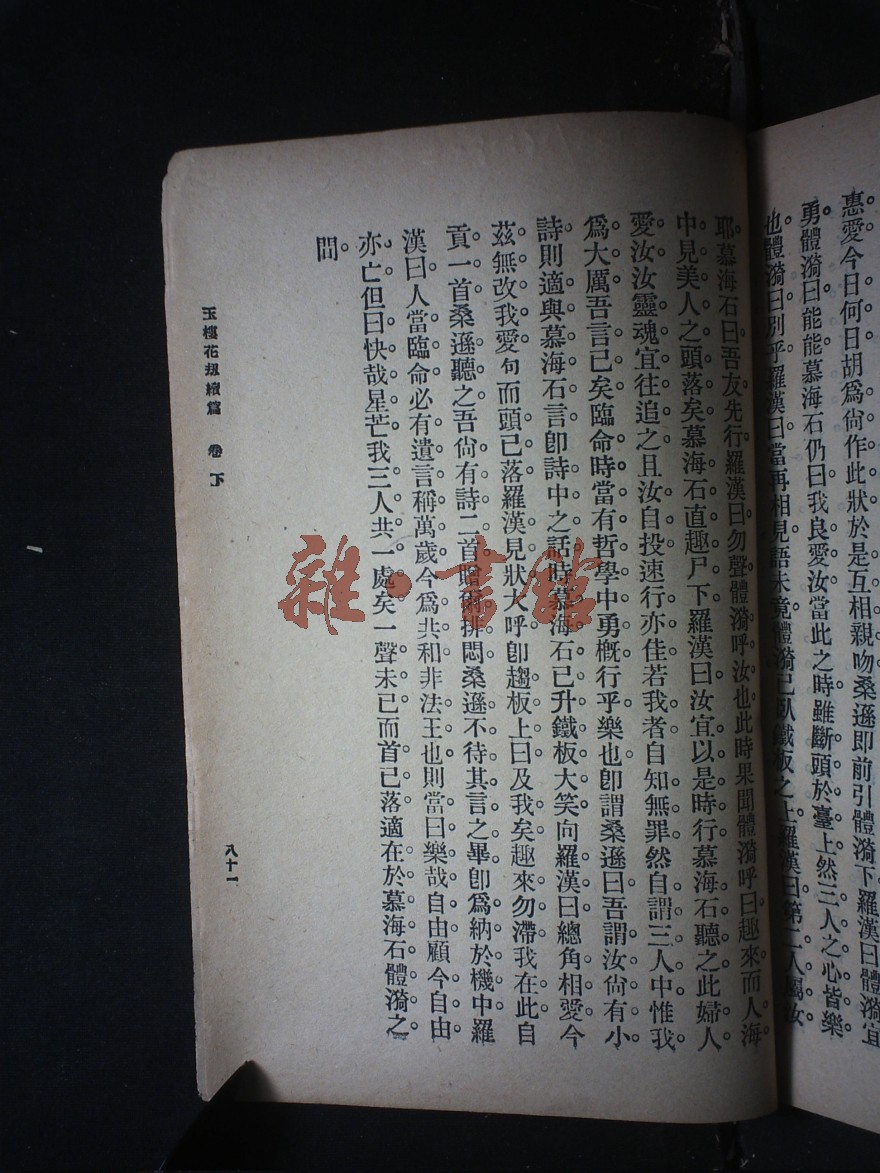 惠愛今日何日胡為尙作此狀於是互相親吻桑遜即前引體漪下羅漢曰體漪宜
勇體漪曰能能慕海石仍曰我良愛汝當此之時雖斷頭於臺上然三人之心皆樂
也體漪曰別乎羅漢曰當再相見語未竟體漪已臥鐵板之上羅漢曰第二人屬汝
耶慕海石曰吾友先行羅漢曰勿聲體漪呼汝也此時果聞體漪呼曰趣來而人海
中見美人之頭落矣慕海石直趣尸下羅漢曰汝宜以是時行慕海石聽之此婦人
愛汝汝靈魂宜往追之且汝自投速行亦佳若我者自知無罪然自謂三人中惟我
為大厲吾言已矣臨命時當有哲學中勇概行乎樂也卽謂桑遜曰吾謂汝尙有小
詩則適與慕海石言卽詩中之話時慕海石已升鐵板大笑向羅漢曰總角相愛今
茲無改我愛句而頭已落羅漢見狀大呼卽趨板上曰及我矣趣來勿滯我在此自
貢一首桑遜聽之吾尙有詩二首贈爾排悶桑遜不待其言之畢卽為納於機中羅
漢曰人當臨命必有遺言稱萬歲今為共和非法王也則當曰樂哉自由顧今自由
亦亡但曰快哉星芒我三人共一處矣一聲未已而首已落適在於慕海石體漪之
間
玉樓花刼續篇 卷下
八十一
雜·書館